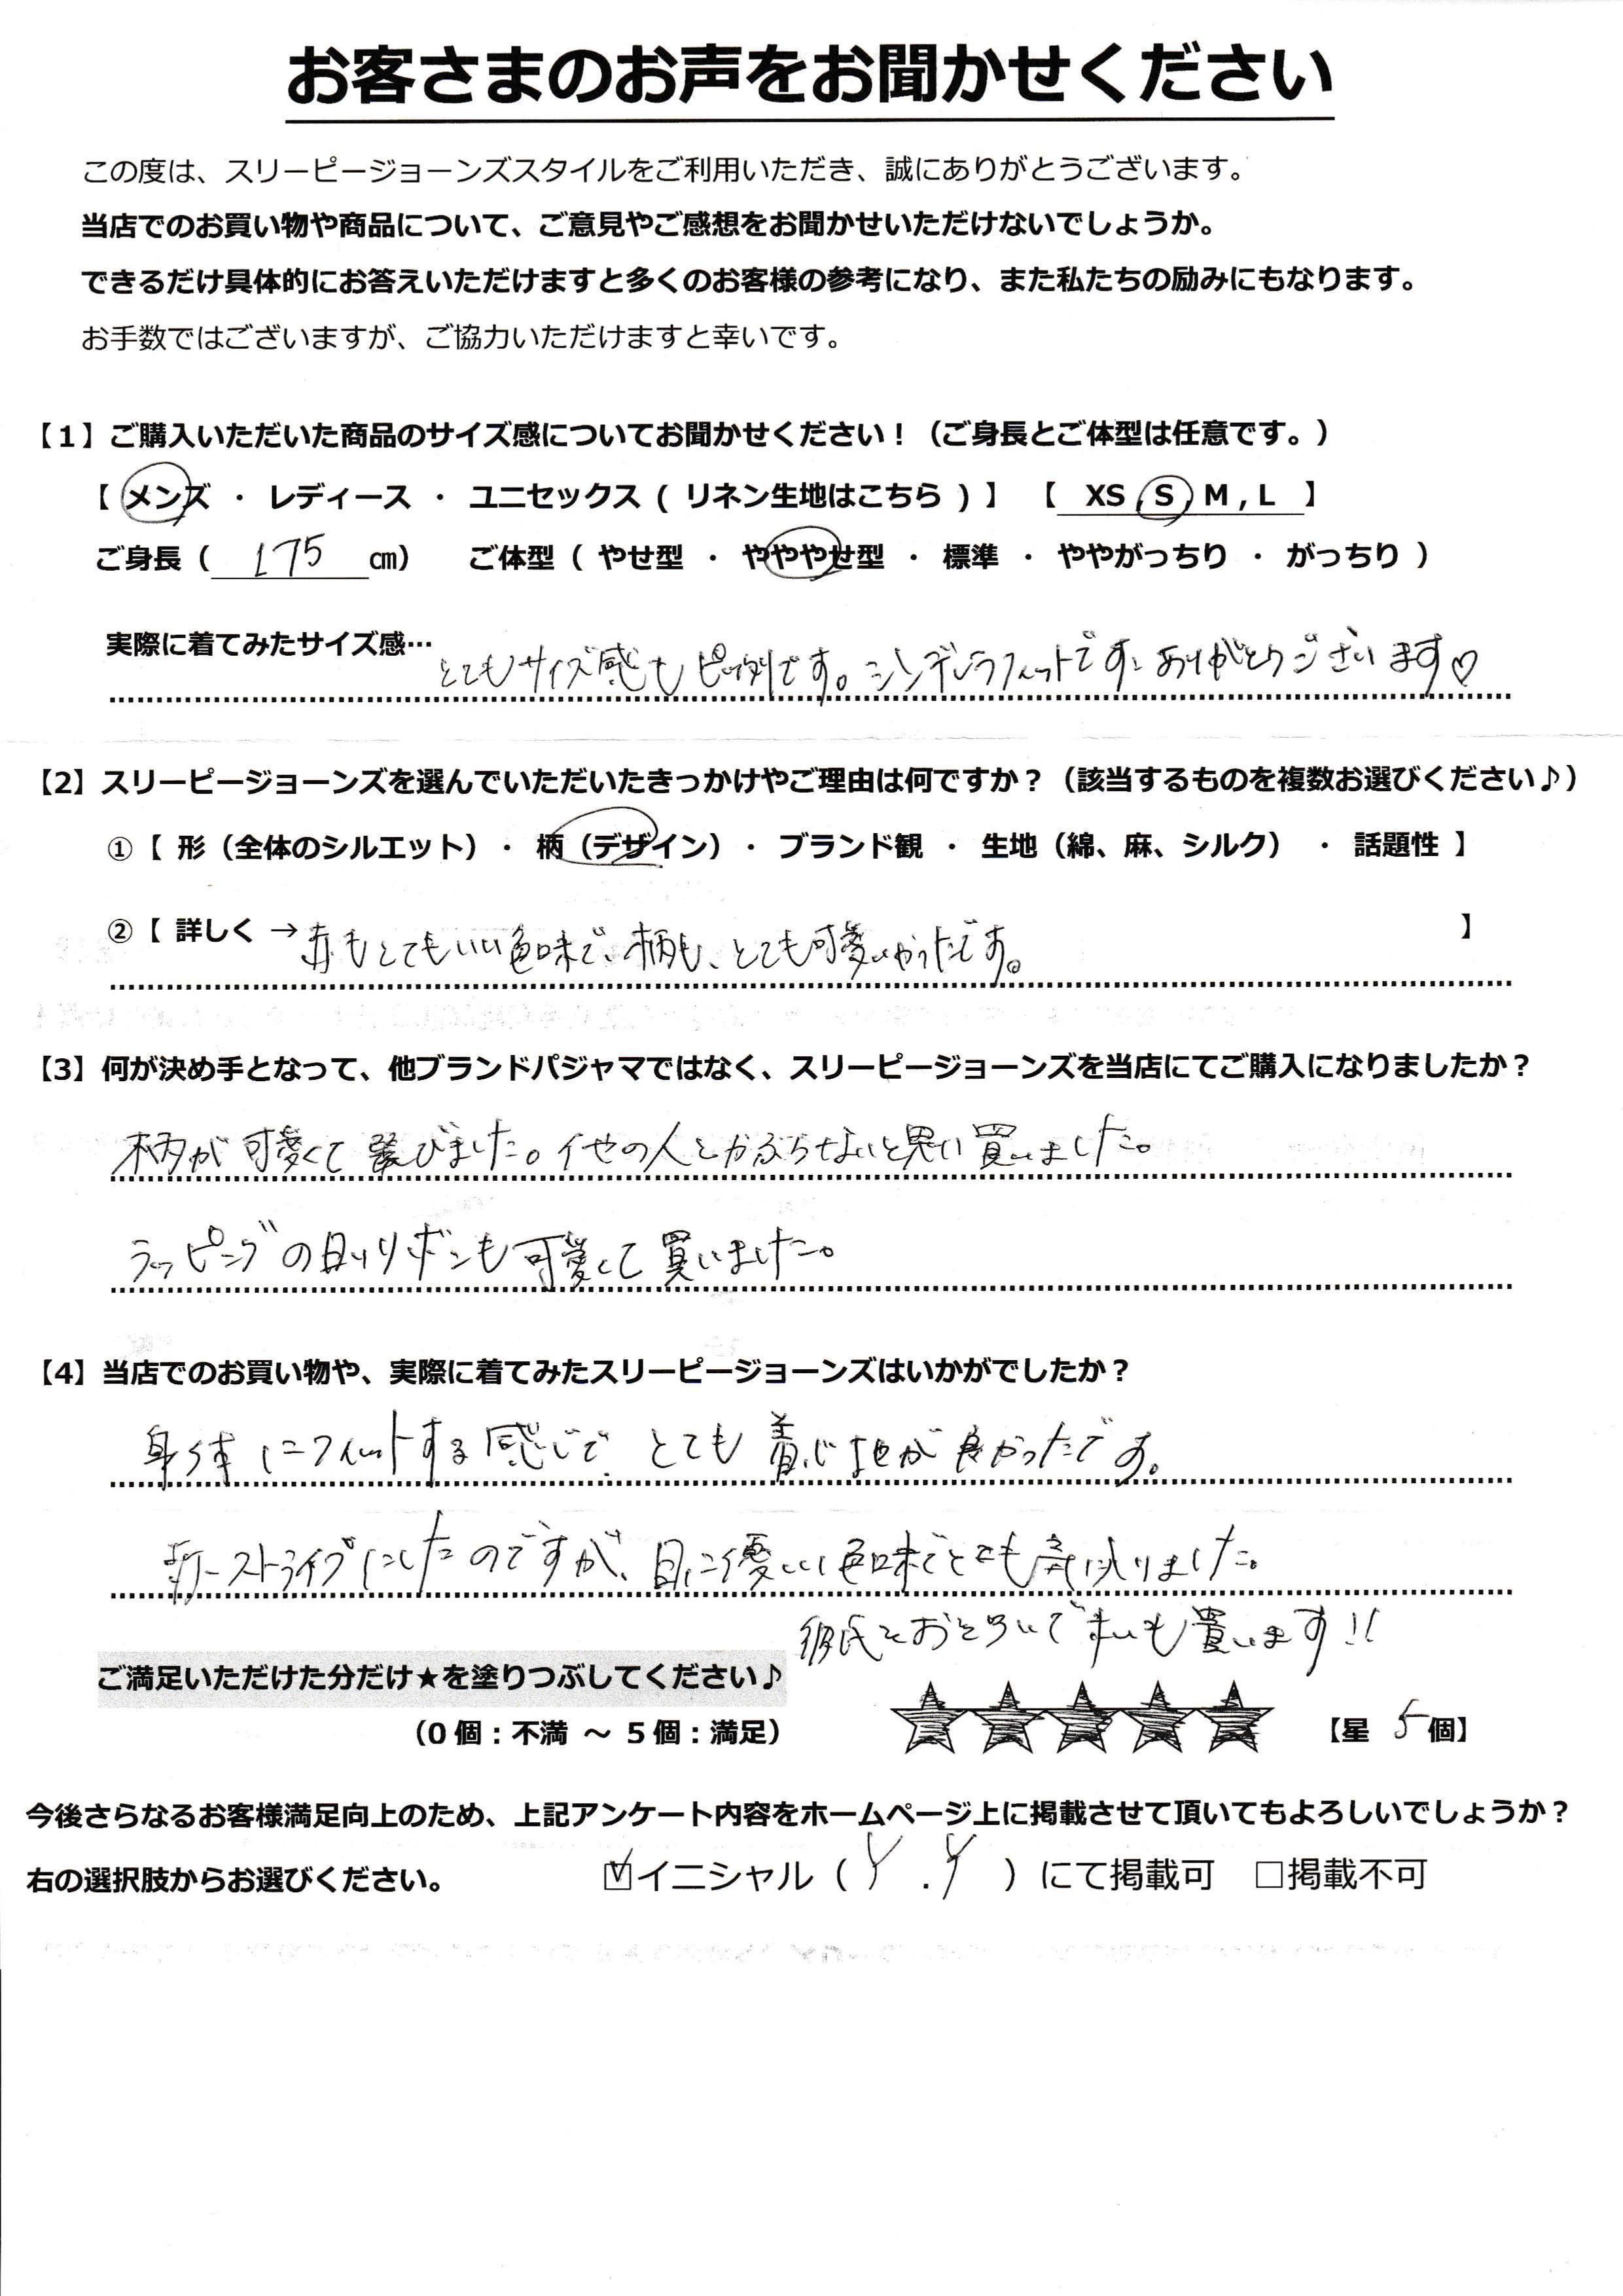 お客さまのお声をお聞かせください
この度は、スリーピージョーンズスタイルをご利用いただき、誠にありがとうございます。
当店でのお買い物や商品について、ご意見やご感想をお聞かせいただけないでしょうか。
できるだけ具体的にお答えいただけますと多くのお客様の参考になり、また私たちの励みにもなります。
お手数ではございますが、ご協力いただけますと幸いです。
【1】ご購入いただいた商品のサイズ感についてお聞かせください！（ご身長とご体型は任意です。）
【 メンズ ・ レディース ・ ユニセックス ( リネン生地はこちら ) 】 【 XS , S , M , L 】
ご身長（ 175 ㎝） ご体型（ やせ型 ・ ややや​せ型 ・ 標準 ・ ややがっちり ・ がっちり ）
実際に着てみたサイズ感… とてもサイズ感もピッタリです。シンデレラフィットです。ありがとうございます♡
【2】スリーピージョーンズを選んでいただいたきっかけやご理由は何ですか？（該当するものを複数お選びください♪）
①【 形（全体のシルエット）・ 柄（デザイン）・ ブランド観 ・ 生地（綿、麻、シルク） ・ 話題性 】
②【 詳しく → 赤もとてもいい色味で、柄も、とても可愛いかったです。 】
【3】何が決め手となって、他ブランドパジャマではなく、スリーピージョーンズを当店にてご購入になりましたか？
柄が可愛くて選びました。他の人とかぶらないと思い買いました。
ラッピングの リボンも可愛くて買いました。
【4】当店でのお買い物や、実際に着てみたスリーピージョーンズはいかがでしたか？
身体にフィットする感じで、とても着心地が良かったです。
ストライプにしたのですが、目に優しい色味でとても気に入りました。
彼氏とおそろいで も買います!!
ご満足いただけた分だけ★を塗りつぶしてください♪
（0 個：不満 ～ 5 個：満足） ★★★★★ 【星 5 個】
今後さらなるお客様満足向上のため、上記アンケート内容をホームページ上に掲載させて頂いてもよろしいでしょうか？
右の選択肢からお選びください。 ☑イニシャル（ Y . Y ）にて掲載可 □掲載不可